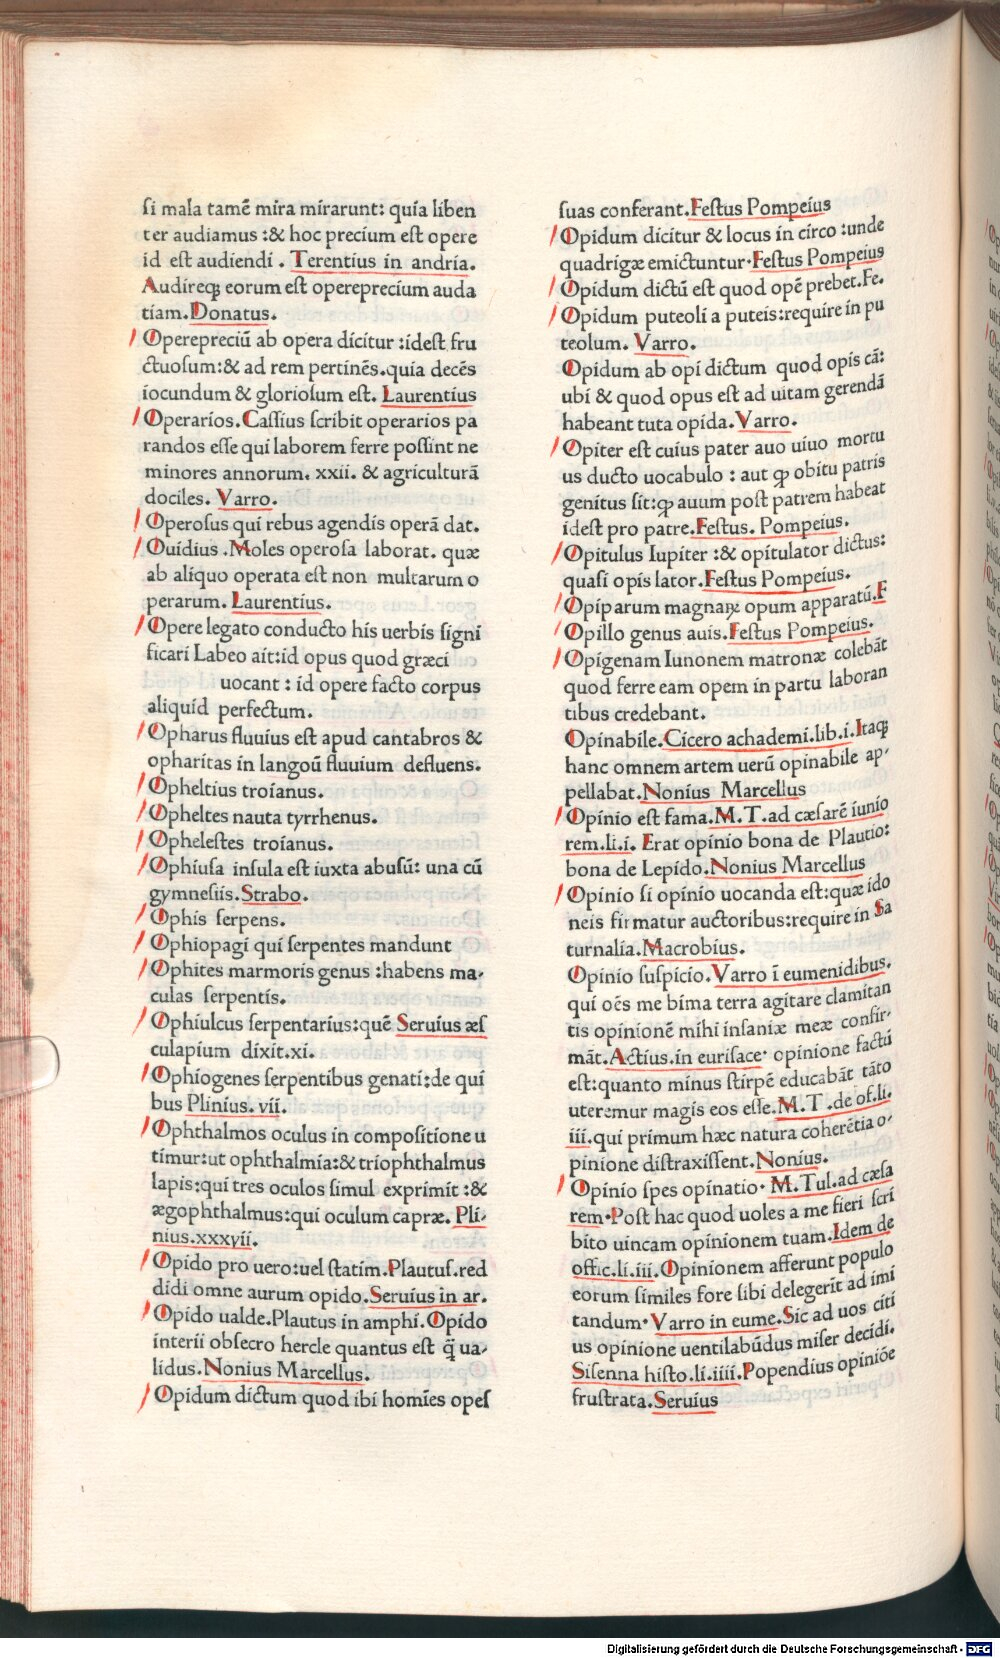 si mala tamē mira mirarunt: quia liben
ter audiamus :& hoc precium est opere
id est audiendi . Terentius in andria.
Audireqꝫ eorum est opereprecium auda
tiam.Donatus.
Operepreciū ab opera dicitur :idest fru
ctuosum:& ad rem pertinēs.quia decēs
iocundum & gloriosum est. Laurentius
Operarios. Cassius scribit operarios pa
randos esse qui laborem ferre possint ne
minores annorum. xxii. & agriculturā
dociles. Varro.
Operosus qui rebus agendis operā dat.
Ouidius .Moles operosa laborat. quæ
ab aliquo operata est non multarum o
perarum. Laurentius.
Opere legato conducto his uerbis signi
ficari Labeo ait:id opus quod græci
uocant : id opere facto corpus
aliquid perfectum.
Opharus fluuius est apud cantabros &
opharitas in langoū fluuium defluens.
Opheltius troianus.
Opheltes nauta tyrrhenus.
Ophelestes troianus.
Ophiusa insula est iuxta abusū: una cū
gymnesiis.Strabo.
Ophis serpens.
Ophiopagi qui serpentes mandunt
Ophites marmoris genus :habens ma-
culas serpentis.
Ophiulcus serpentarius:quē Seruius æs
culapium dixit.xi.
Ophiogenes serpentibus genati:de qui
bus Plinius. vii.
Ophthalmos oculus in compositione u
timur:ut ophthalmia:& triophthalmus
lapis:qui tres oculos simul exprimit :&
ægophthalmus:qui oculum capræ. Pli-
nius.xxxvii.
Opido pro uero:uel statim.Plautus.red
didi omne aurum opido.Seruius in ar.
Opido ualde.Plautus in amphi.Opido
interii obsecro hercle quantus est q̄ ua-
lidus.Nonius Marcellus.
Opidum dictum quod ibi homīes opes
suas conferant.Festus Pompeius
Opidum dicitur & locus in circo :unde
quadrigæ emictuntur.Festus Pompeius
Opidum dictū est quod opē prebet.Fe.
Opidum puteoli a puteis:require in pu
teolum. Varro.
Opidum ab opi dictum quod opis cā:
ubi & quod opus est ad uitam gerendā
habeant tuta opida.Varro.
Opiter est cuius pater auo uiuo mortu
us ducto uocabulo : aut ꝙ obitu patris
genitus sit:ꝙ auum post patrem habeat
idest pro patre.Festus. Pompeius.
Opitulus Iupiter :& opitulator dictus:
quasi opis lator.Festus Pompeius.
Opiparum magnaꝝ opum apparatū.F
Opillo genus auis.Festus Pompeius.
Opigenam Iunonem matronæ colebāt
quod ferre eam opem in partu laboran
tibus credebant.
Opinabile.Cicero achademi.lib.i.Itaqꝫ
hanc omnem artem uerū opinabile ap-
pellabat.Nonius Marcellus
Opinio est fama.M.T.ad cæsarē iunio
rem.li.i. Erat opinio bona de Plautio:
bona de Lepido.Nonius Marcellus
Opinio si opinio uocanda est:quæ ido
neis firmatur auctoribus:require in Sa
turnalia.Macrobius.
Opinio suspicio.Varro ī eumenidibus.
qui oēs me bima terra agitare clamitan
tis opinionē mihi insaniæ meæ confir-
māt.Actius.in eurisace. opinione factū
est:quanto minus stirpē educabāt tāto
uteremur magis eos esse.M.T.de of.li.
iii.qui primum hæc natura coherētia o-
pinione distraxissent.Nonius.
Opinio spes opinatio. M.Tul.ad cæsa
rem.Post hac quod uoles a me fieri scri
bito uincam opinionem tuam.Idem de
offic.li.iii.Opinionem afferunt populo
eorum similes fore sibi delegerit ad imi
tandum. Varro in eume.Sic ad uos citi
us opinione uentilabūdus miser decidi.
Sisenna histo.li.iiii.Popendius opiniōe
frustrata.Seruius
Digitalisierung gefördert durch die Deutsche Forschungsgemeinschaft - DFG